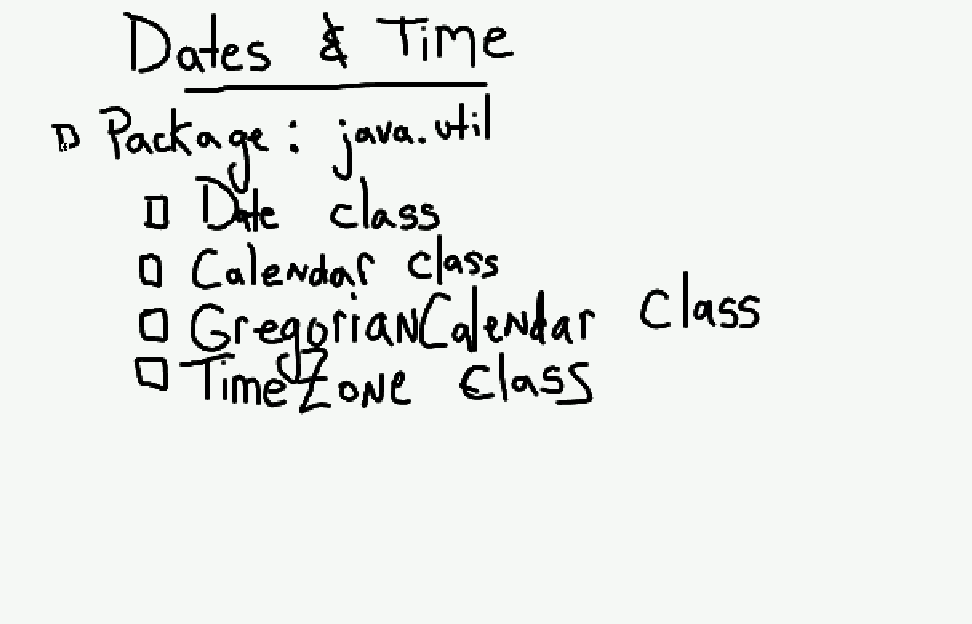 Dates & Time
Package: java.util
Date class
Calendar class
GregorianCalendar class
TimeZone class